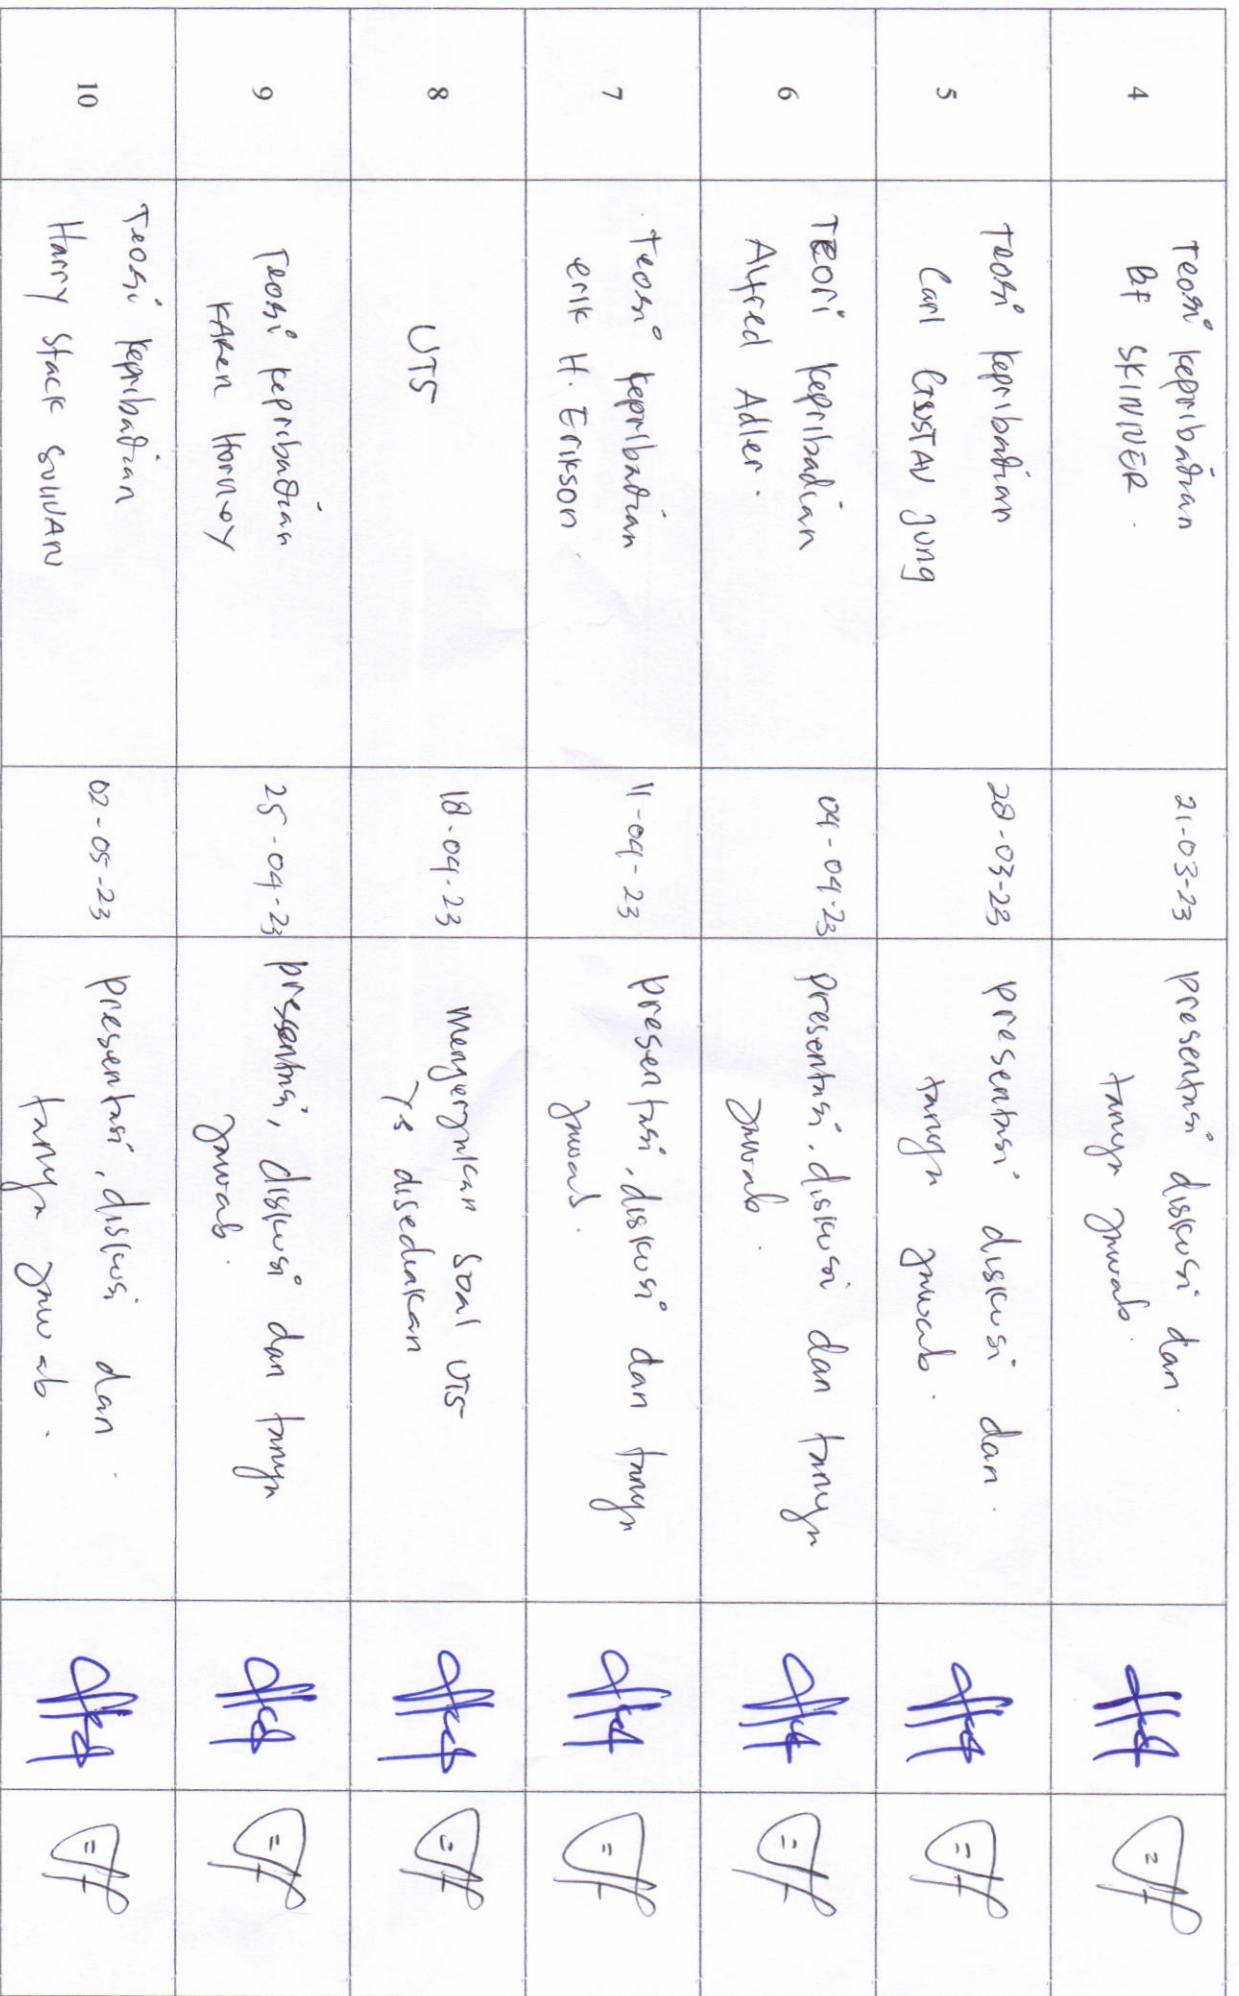 4
Teori kepribadian
BF SKINNER.
21-03-23
presentasi diskusi dan.
tanya jawab.
5
Teori kepribadian
Carl GUSTAV Jung
28-03-23
presentasi diskusi dan.
tanya jawab.
6
TEORI kepribadian
Alfred Adler.
04-04-23
presentasi, diskusi dan tanya
jawab.
7
Teori kepribadian
erik H. Erikson.
11-04-23
presentasi, diskusi dan tanya
jawab.
8
UTS
18-04-23
mengerjakan soal UTS
yg disediakan
9
Teori kepribadian
KAREN Horney
25-04-23
presentasi, diskusi dan tanya
jawab.
10
Teori kepribadian
Harry Stack SULLIVAN
02-05-23
presentasi, diskusi dan.
tanya jawab.